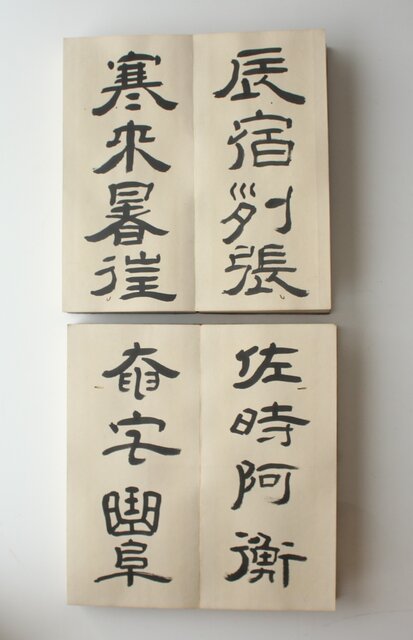 辰宿列張
寒來暑往
佐時阿衡
奄宅曲阜